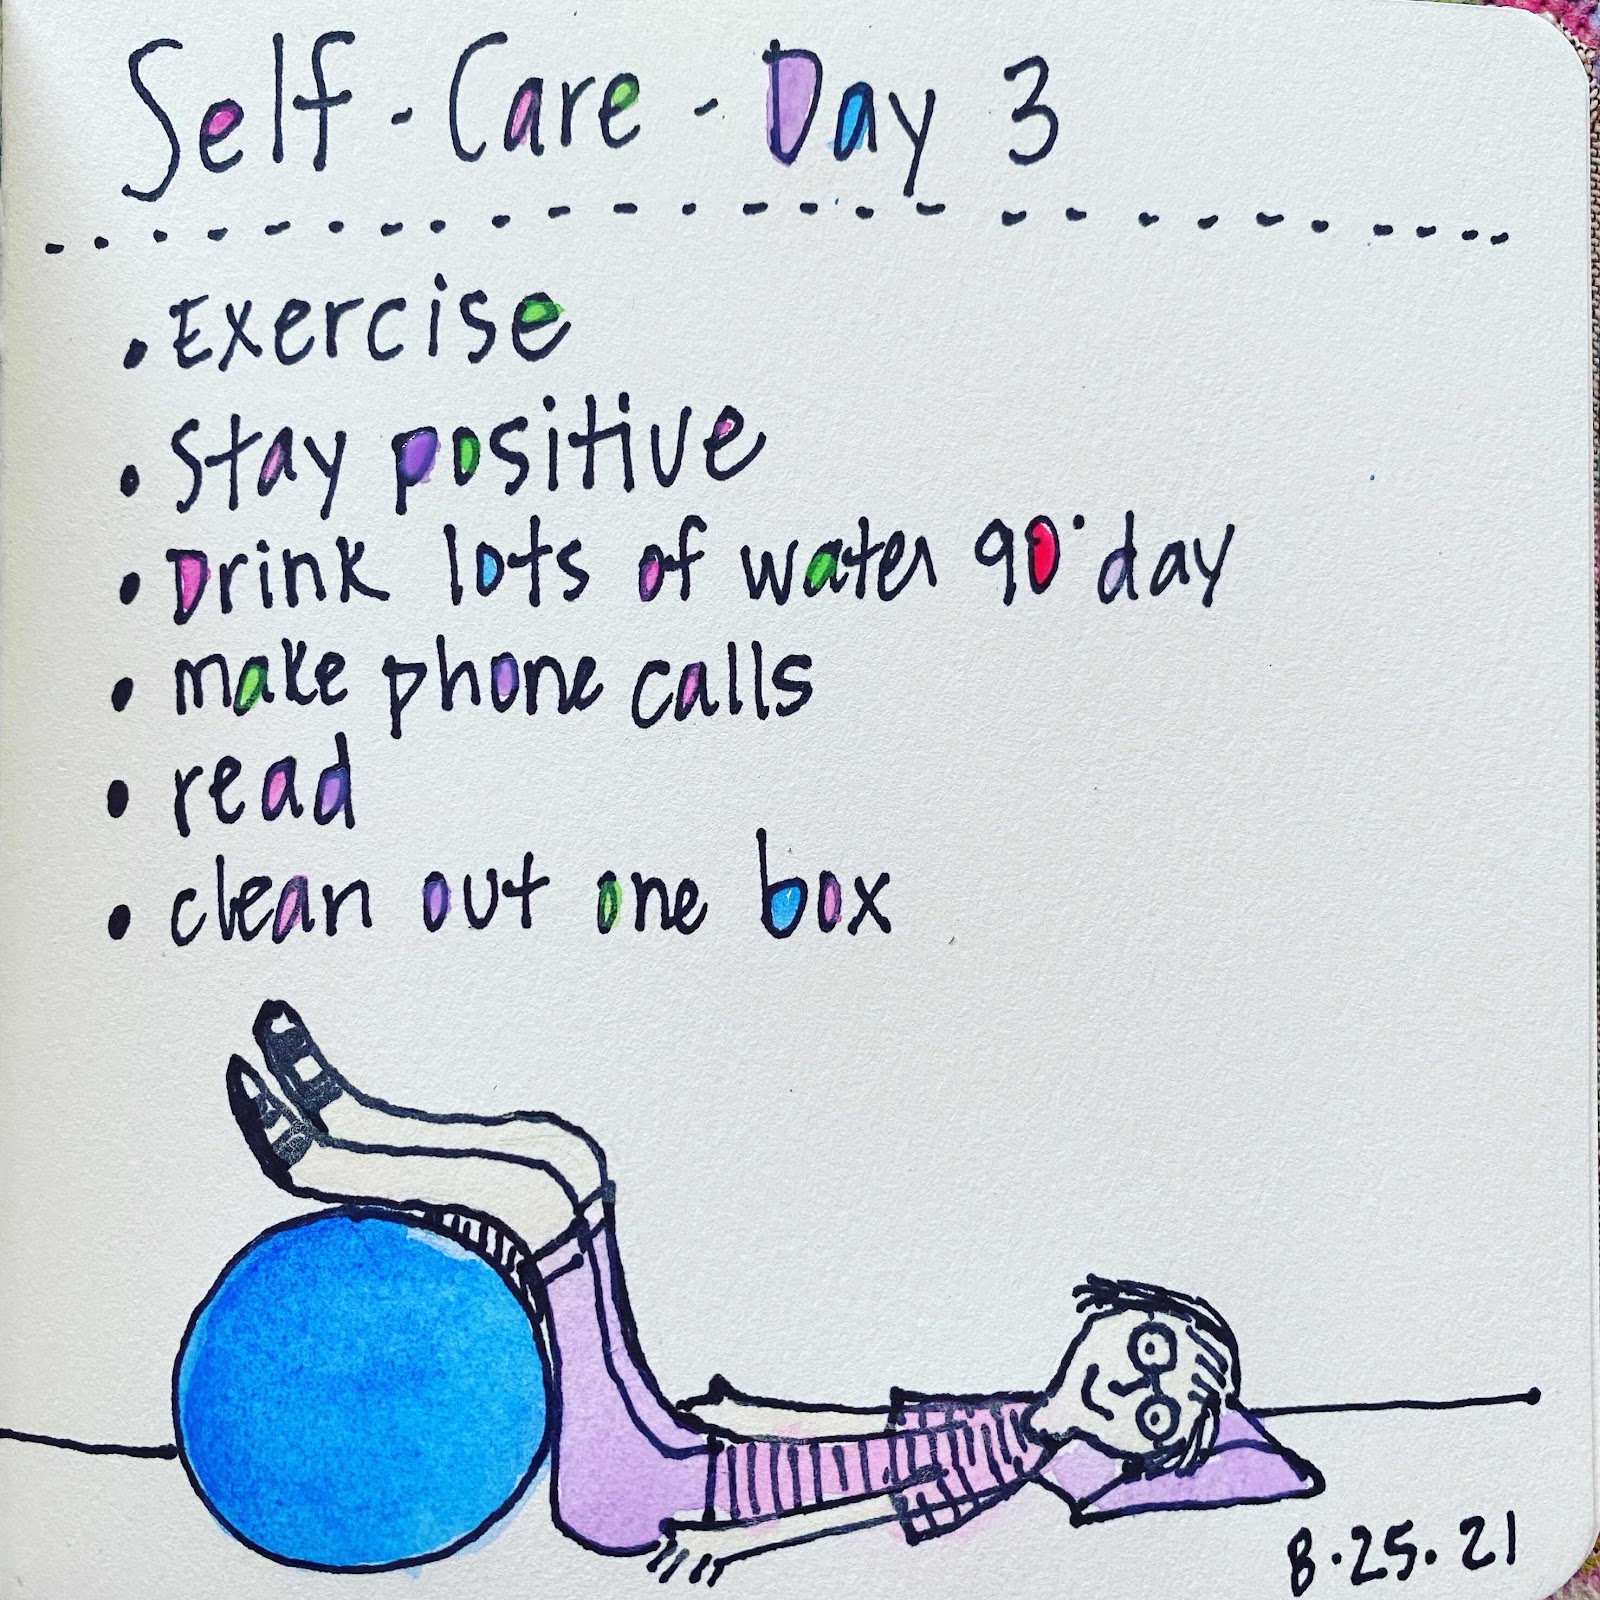 Self-Care-Day 3
• Exercise
• Stay positive
• Drink lots of water 90° day
• make phone calls
• read
• clean out one box
8.25.21